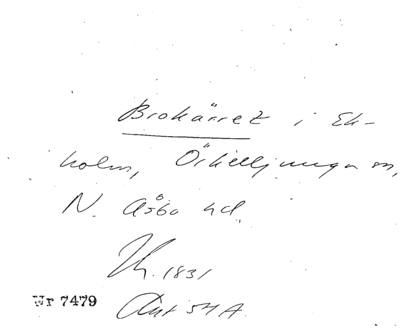 Brokärret i Ek-
holm, Örkelljunga sn,
N. Åsbo hd.
1831
Nr 7479